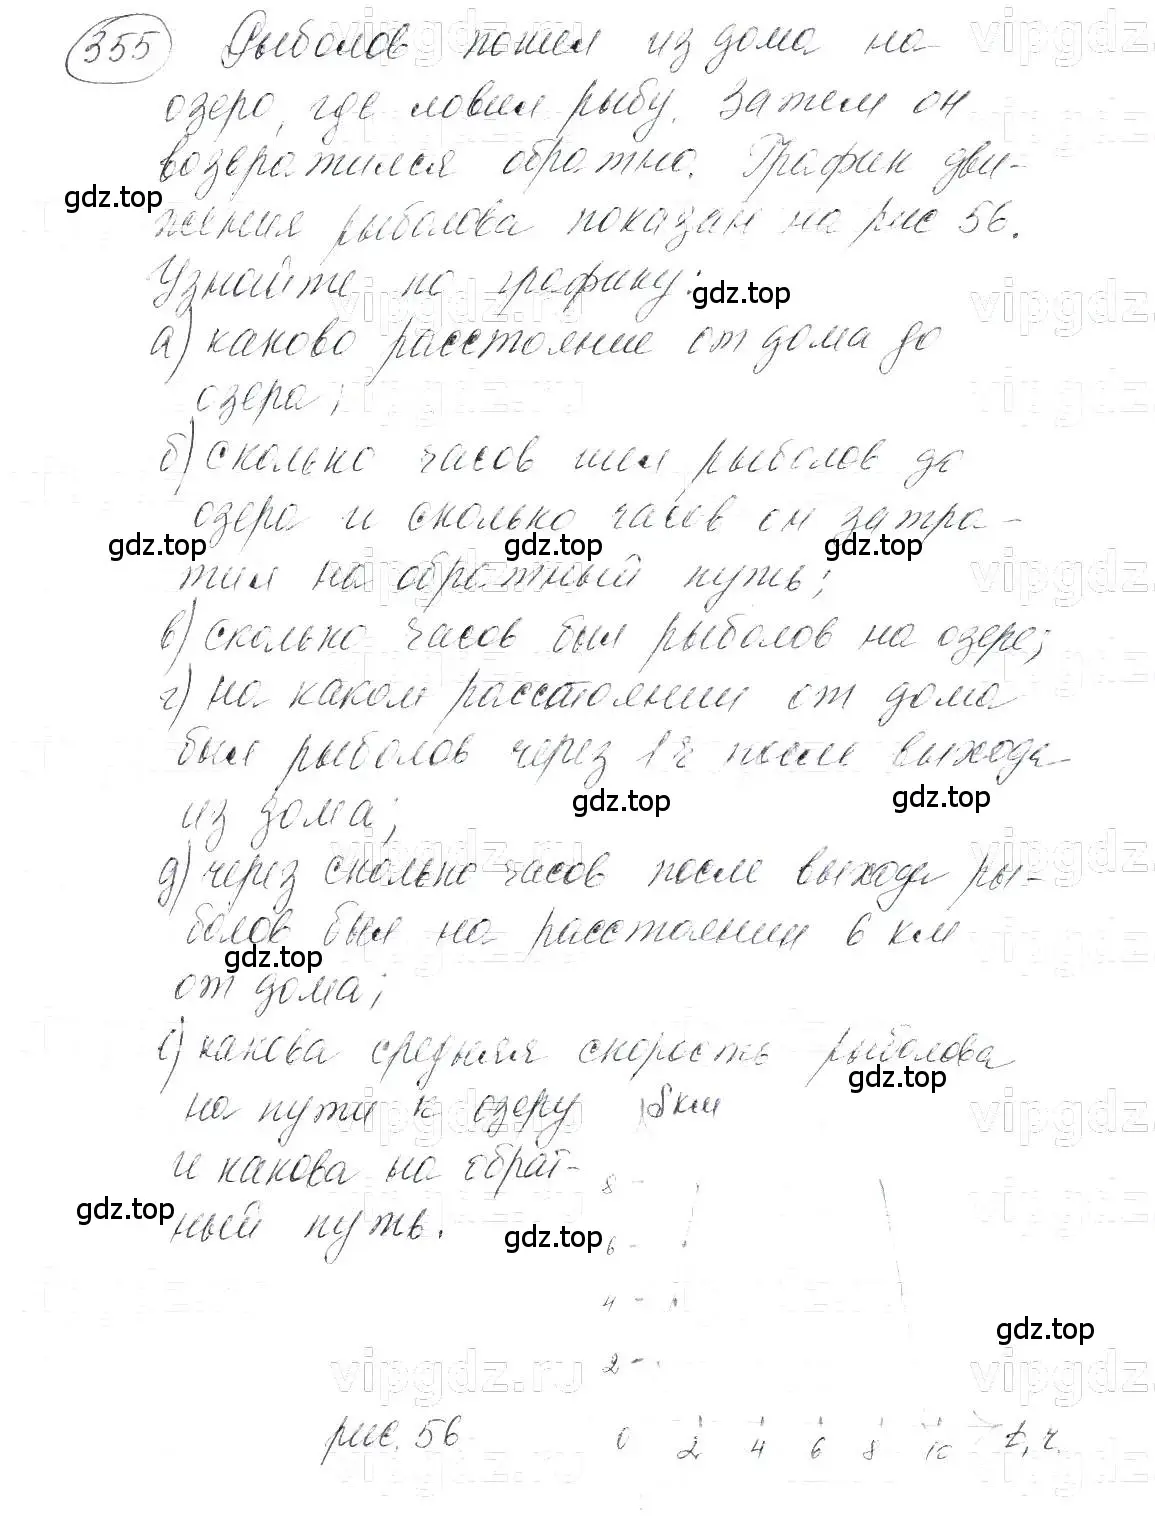 355 Рыболов пошел из дома на
озеро, где ловил рыбу. Затем он
возвратился обратно. График дви-
жения рыболова показан на рис 56.
Узнайте по графику:
а) каково расстояние от дома до
озера;
б) сколько часов шел рыболов до
озера и сколько часов он затра-
тил на обратный путь;
в) сколько часов был рыболов на озере;
г) на каком расстоянии от дома
был рыболов через 1 ч после выхода
из дома;
д) через сколько часов после выхода ры-
болов был на расстоянии 6 км
от дома;
е) какова средняя скорость рыболова
на пути к озеру
и какова на обрат-
ный путь.
8
6
4
2
0 2 4 6 8 10 t, ч.
рис. 56
gdz.top
gdz.top
gdz.top
gdz.top
gdz.top
gdz.top
gdz.top
gdz.top
gdz.top
gdz.top
gdz.top
gdz.top
vipgdz.ru